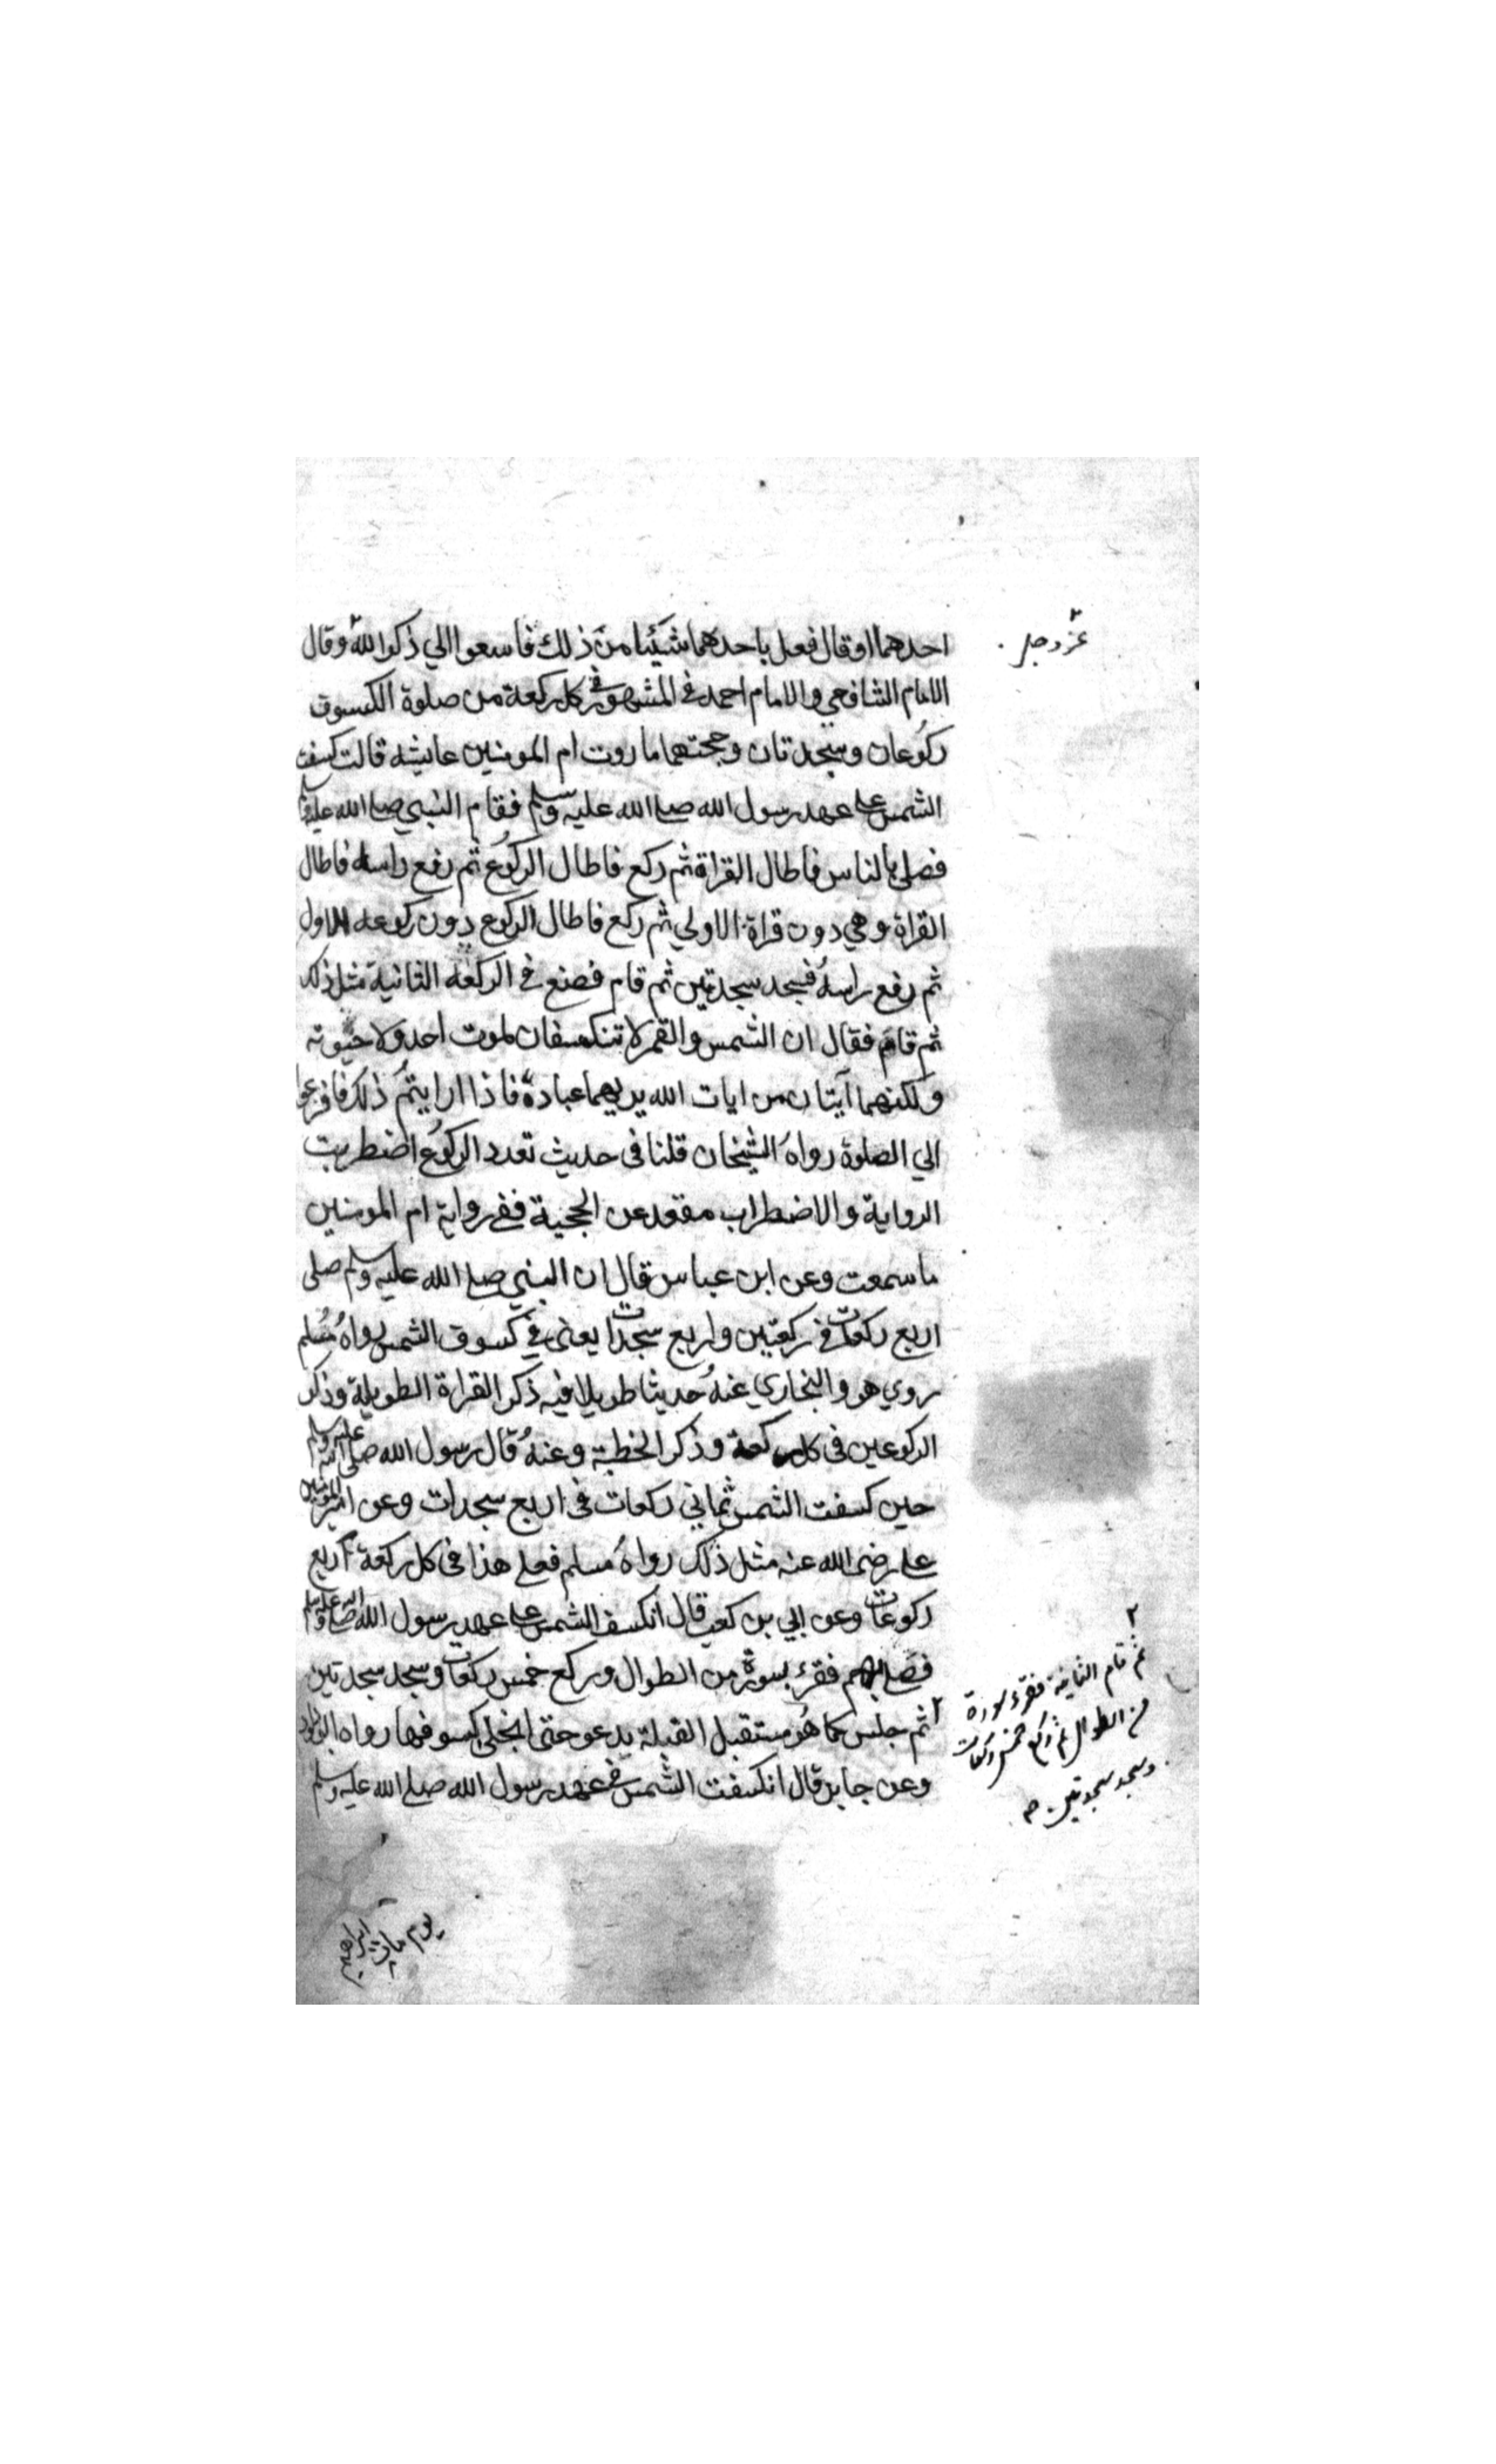 احدهما او قال فعل باحدهما شيئا من ذلك فاسعوا الي ذكر الله وقال
عز وجل
الامام الشافعي والامام احمد في المشهور في كل ركعة من صلوة الكسوف
ركوعان وسجدتان وحجتهما ما روت ام المومنين عايشه قالت كسفت
الشمس علي عهد رسول الله صلي الله عليه وسلم فقام النبي صلي الله عليه وسلم
فصلي بالناس فاطال القراة ثم ركع فاطال الركوع ثم رفع راسه فاطال
القراة وهي دون قراة الاولي ثم ركع فاطال الركوع دون ركوعه الاول
ثم رفع راسه فسجد سجدتين ثم قام فصنع في الركعة الثانية مثل ذلك
ثم قام فقال ان الشمس والقمر لا تنكسفان لموت احد ولا حيوته
ولكنهما آيتان من ايات الله يريهما عباده فاذا ارايتم ذلك فافزعوا
الي الصلوة رواه الشيخان قلنا في حديث تعدد الركوع اضطربت
الرواية والاضطراب مقعد عن الحجية ففي رواية ام المومنين
ما سمعت وعن ابن عباس قال ان النبي صلي الله عليه وسلم صلي
اربع ركعات في ركعتين واربع سجدات يعني في كسوف الشمس رواه مسلم
روي هو والبخاري عنه حديثا طويلا فيه ذكر القراءة الطويلة وذكر
الركوعين في كل ركعة وذكر الخطبة وعنه قال رسول الله صلي الله عليه وسلم
حين كسفت الشمس ثماني ركعات في اربع سجدات وعن امير المومنين
علي رضي الله عنه مثل ذلك رواه مسلم فعلي هذا في كل ركعة اربع
ركوعات وعن ابي بن كعب قال انكسف الشمس علي عهد رسول الله صلي الله عليه وسلم
فصلي بهم فقرء بسورة من الطوال وركع خمس ركعات وسجد سجدتين
٢ ثم جلس كما هو مستقبل القبلة يدعو حتي انجلي كسوفها رواه ابو داود
وعن جابر قال انكسفت الشمس في عهد رسول الله صلي الله عليه وسلم
٢
ثم قام الثانية فقرء سورة
من الطوال ثم ركع خمس ركعات
وسجد سجدتين صح
يوم مات ابراهيم